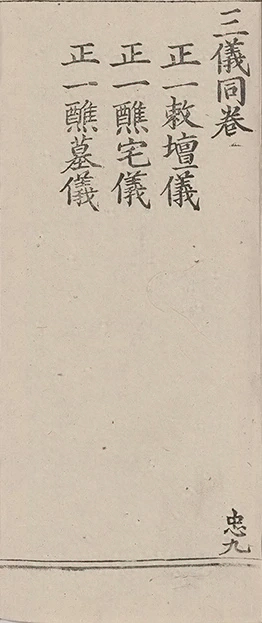 三儀同卷
正一敕壇儀
正一醮宅儀
正一醮墓儀
忠九